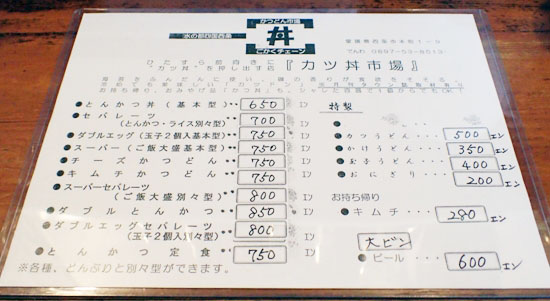 かつどん市場
丼
ごかくチェーン
でんわ 0897-53-8513
ひたすら前向きに
"カツ丼"を押し出す店
『カツ丼市場』
●とんかつ丼(基本型)‥ 650 エン
●セパレーツ
(とんかつ・ライス別々型) 700 エン
●ダブルエッグ(玉子2個入基本型) 750 エン
●スーパー(ご飯大盛基本型) 750 エン
●チーズかつどん‥ 750 エン
●キムチかつどん‥ 750 エン
●スーパーセパレーツ
(ご飯大盛別々型) 800 エン
●ダブルとんかつ‥ 850 エン
●ダブルエッグセパレーツ
(玉子2個入別々型) 800 エン
●とんかつ定食‥ 750 エン
※各種、どんぶりと別々型ができます。
特製
●カツうどん・・・ 500 エン
●かけうどん・・・ 350 エン
●玉子うどん・・・ 400 エン
●おにぎり・・・ 200 エン
お持ち帰り
●キムチ・・・ 280 エン
大ビン
●ビール・・・ 600 エン